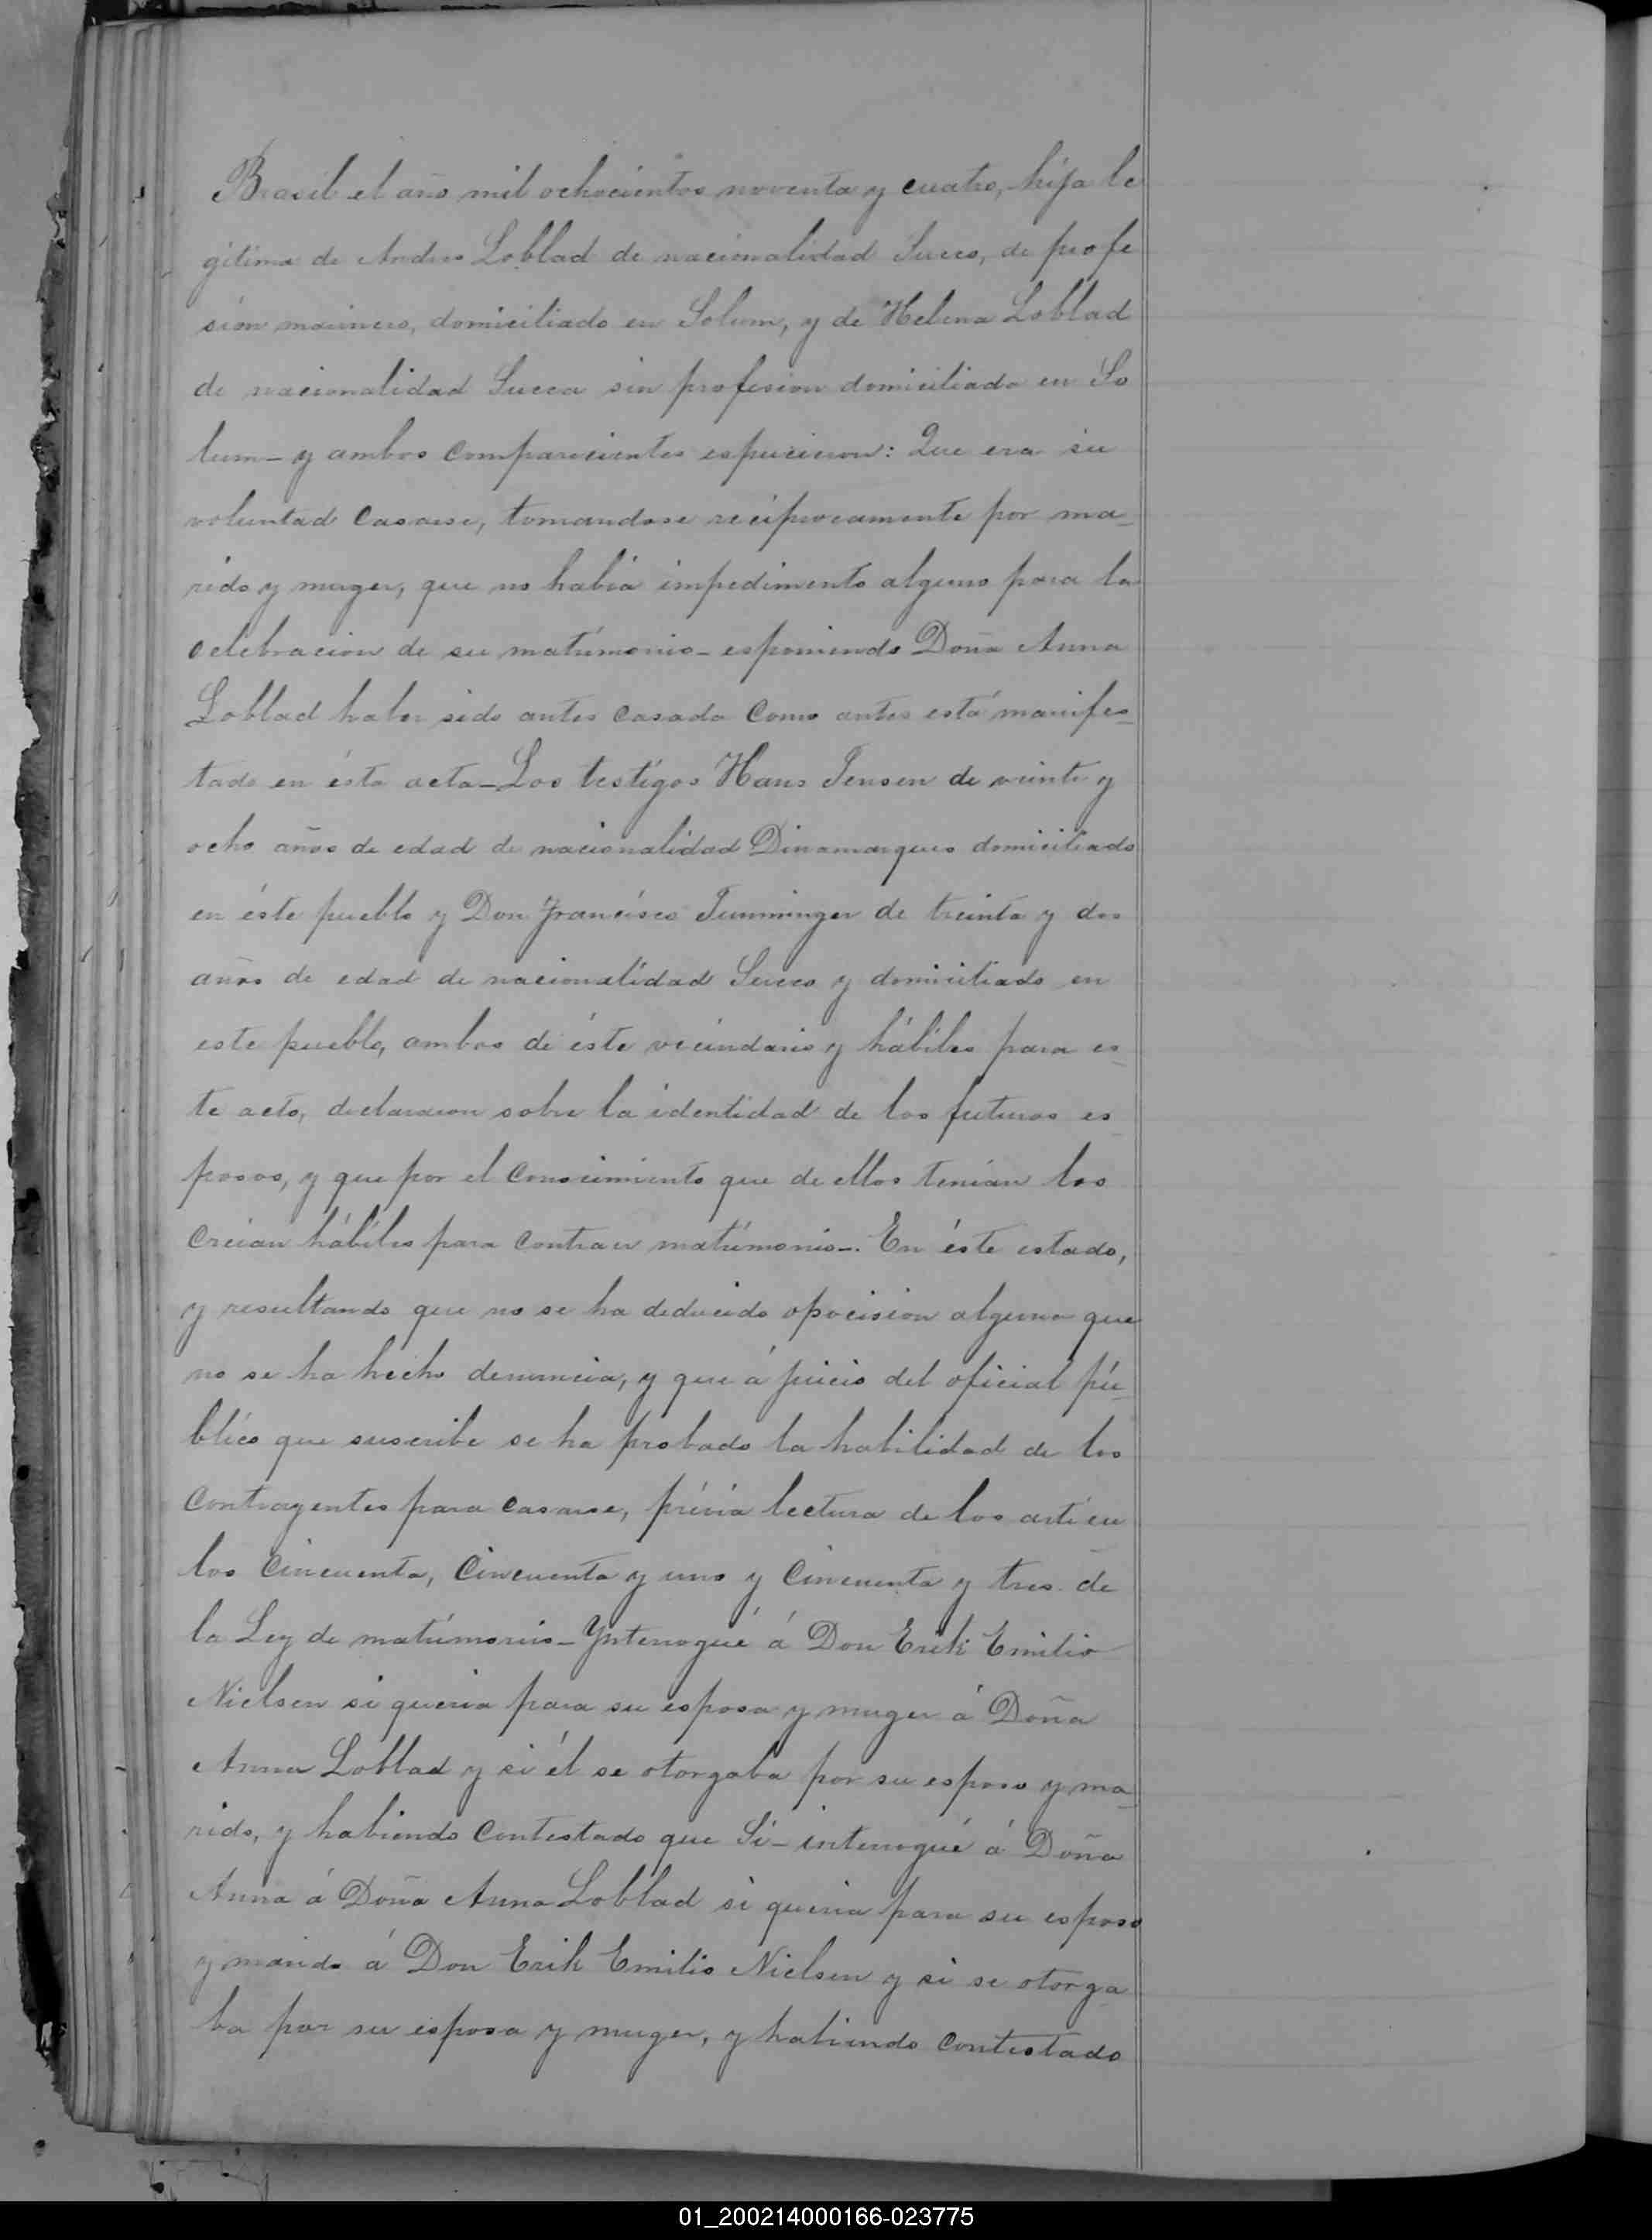 Brasil el año mil ochocientos noventa y cuatro, hija le
gitima de Andres Loblad de nacionalidad Sueco, de profe
sión marinero, domiciliado en Solum, y de Helena Loblad
de nacionalidad Sueca sin profesion domiciliada en So
lum_ y ambos comparecientes espucieron: Que era su
voluntad casarse, tomandose reciprocamente por ma_
rido y muger, que no habia impedimento alguno para la
celebracion de su matrimonio_ esponiendo Doña Anna
Loblad haber sido antes casada como antes está manifes_
tado en ésta acta_ Los testigos Hans Jensen de veinte y
ocho años de edad de nacionalidad Dinamarques domiciliado
en éste pueblo y Don Francisco Tumminger de treinta y dos
años de edad de nacionalidad Sueco y domiciliado en
este pueblo, ambos de éste vecindario y hábiles para es_
te acto, declararon sobre la identidad de los futuros es_
posos, y que por el conocimiento que de ellos tenian los
creian hábiles para contraer matrimonio_. En éste estado,
y resultando que no se ha deducido oposicion alguna que
no se ha hecho denuncia, y que á juicio del oficial pú_
blico que suscribe se ha probado la habilidad de los
contrayentes para casarse, prévia lectura de los artícu
los cincuenta, cincuenta y uno y cincuenta y tres de
la Ley de matrimonio_ Ynterrogué á Don Erik Emilio
Nielsen si queria para su esposa y muger á Doña
Anna Loblad y si él se otorgaba por su esposo y ma_
rido, y habiendo contestado que Sí_ interrogué á Doña
Anna á Doña Anna Loblad si queria para su esposo
y marido á Don Erik Emilio Nielsen y si se otorga_
ba por su esposa y muger, y habiendo contestado
01_200214000166-023775